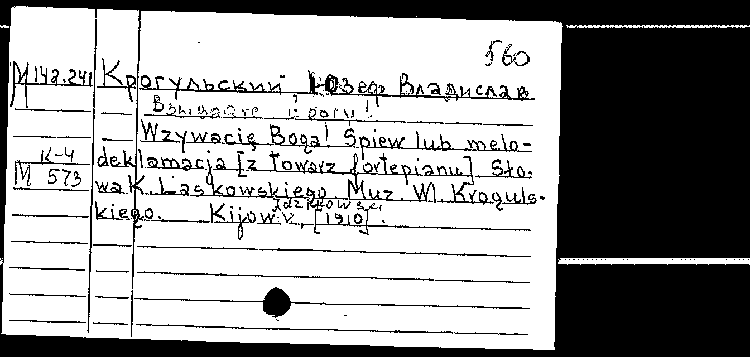 560
М 142.241 Крогульский Юзеф Владислав
Взывайте к богу!
Wzywacię Boga! Spiew lub melo-
К-4 deklamacja [z towarz fortepianu]. Sło-
М 573 wa K. Laskowskiego. Muz. Wl. Kroguls-
kiego. Kijow., [1910].